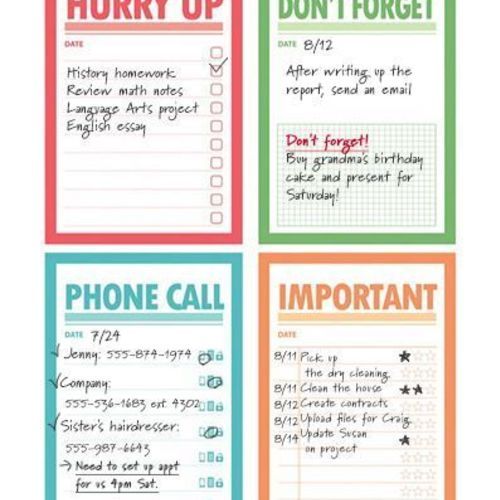 HURRY UP
DATE
History homework
Review math notes
Language Arts project
English essay
DON'T FORGET
DATE 8/12
After writing up the
report, send an email
Don't forget!
Buy grandma's birthday
cake and present for
Saturday!
PHONE CALL
DATE 7/24
Jenny: 555-874-1974
Company:
555-536-1683 ext. 4302
Sister's hairdresser:
555-987-6643
→ Need to set up appt
for us 4pm Sat.
IMPORTANT
DATE
8/11 Pick up
the dry cleaning
8/11 Clean the house
8/12 Create contracts
8/12 Upload files for Craig
8/14 Update Susan
on project